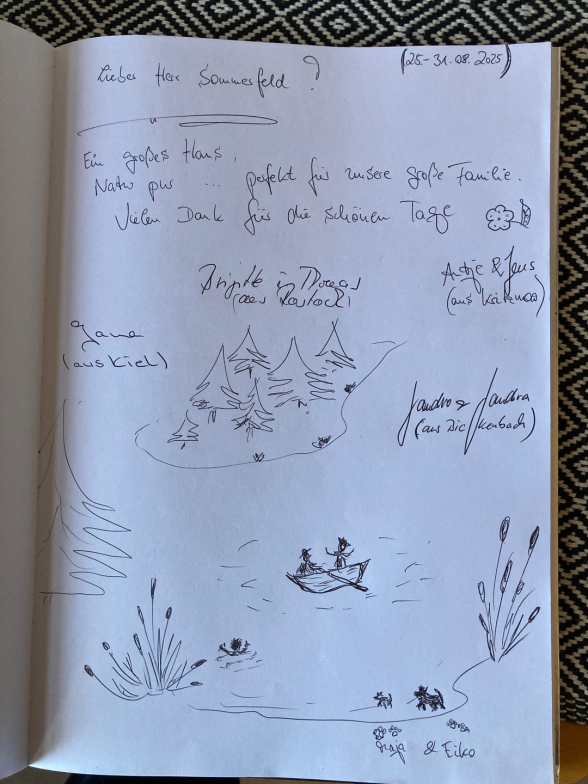 (25-31.08.2025)
Lieber Herr Sommerfeld ?
Ein großes Haus,
Natur pur ... perfekt für unsere große Familie.
Vielen Dank für die schönen Tage
Brigitte
(aus Rostock)
Antje & Jens
(aus
Jana
(aus Kiel)
Sandro & Sandra
(aus
& Eiko